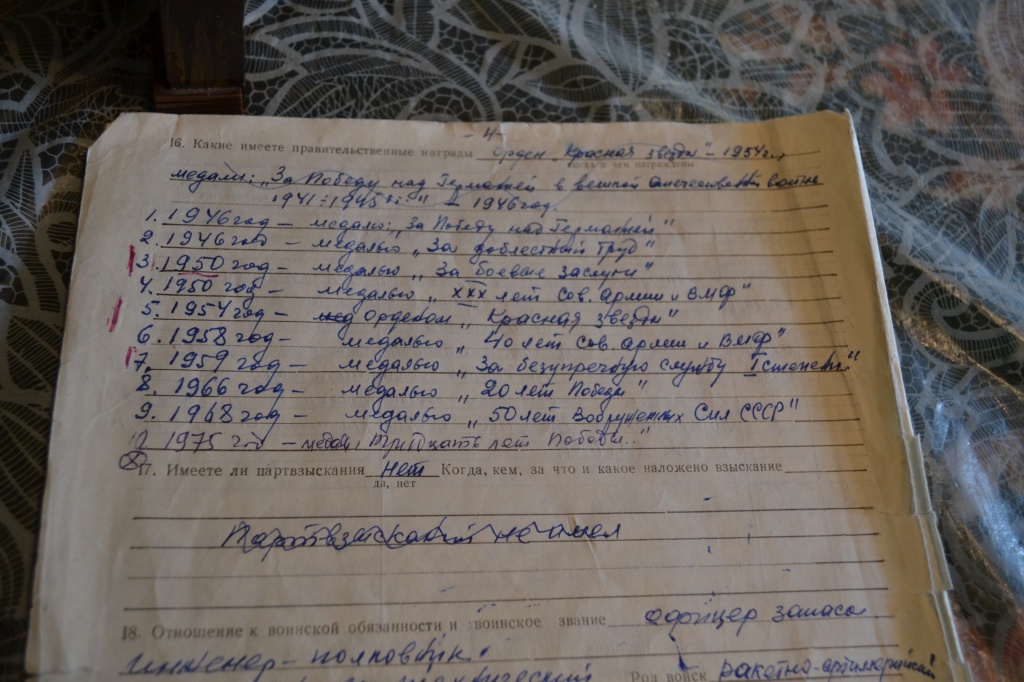 - 4 -
16. Какие имеете правительственные награды Орден „Красная звезда" - 1954 г.
когда и чем награждены
медали: „За Победу над Германией в великой отечественной войне
1941-1945 г.г." - 1946 год.
1. 1946 год - медалью „За Победу над Германией"
2. 1946 год - медалью „За доблестный труд"
3. 1950 год - медалью „За боевые заслуги"
4. 1950 год - медалью „XXX лет Сов. армии и ВМФ"
5. 1954 год - мед орденом „Красная звезда"
6. 1958 год - медалью „40 лет Сов. армии и ВМФ"
7. 1959 год - медалью „За безупречную службу I степени"
8. 1966 год - медалью „20 лет Победы"
9. 1968 год - медалью „50 лет Вооруженных Сил СССР"
1975 год - медаль „Тридцать лет Победы.."
17. Имеете ли партвзыскания нет Когда, кем, за что и какое наложено взыскание
да, нет
Партвзысканий не имел
18. Отношение к воинской обязанности и воинское звание офицер запаса
инженер-полковник.
Род войск ракетно-артиллерийский